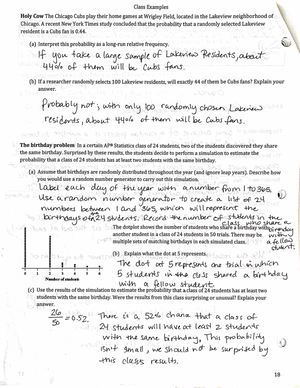 Class Examples
Holy Cow The Chicago Cubs play their home games at Wrigley Field, located in the Lakeview neighborhood of
Chicago. A recent New York Times study concluded that the probability that a randomly selected Lakeview
resident is a Cubs fan is 0.44.
(a) Interpret this probability as a long-run relative frequency.
If you take a large sample of Lakeview Residents, about
44% of them will be Cubs fans.
(b) If a researcher randomly selects 100 Lakeview residents, will exactly 44 of them be Cubs fans? Explain your
answer.
Probably not; with only 100 randomly chosen Lakeview
residents, about 44% of them will be Cubs fans.
The birthday problem In a certain AP® Statistics class of 24 students, two of the students discovered they share
the same birthday. Surprised by these results, the students decide to perform a simulation to estimate the
probability that a class of 24 students has at least two students with the same birthday.
(a) Assume that birthdays are randomly distributed throughout the year (and ignore leap years). Describe how
you would use a random number generator to carry out this simulation.
Label each day of the year with a number from 1 to 365.
Use a random number generator to create a list of 24
numbers between 1 and 365, which will represent the
birthdays of 24 students. Record the number of students in the
class who share a
birthday
with
a fellow
student.
The dotplot shows the number of students who share a birthday with
another student in a class of 24 students in 50 trials. There may be
multiple sets of matching birthdays in each simulated class.
(b) Explain what the dot at 5 represents.
The dot at 5 represents one trial in which
5 students in the class shared a birthday
with a fellow student.
0 1 2 3 4 5 6
Number of students
(c) Use the results of the simulation to estimate the probability that a class of 24 students has at least two
students with the same birthday. Were the results from this class surprising or unusual? Explain your
answer.
26/50 = 0.52
There is a 52% chance that a class of
24 students will have at least 2 students
with the same birthday. This probability
isn't small, we should not be surprised by
this class results.
18